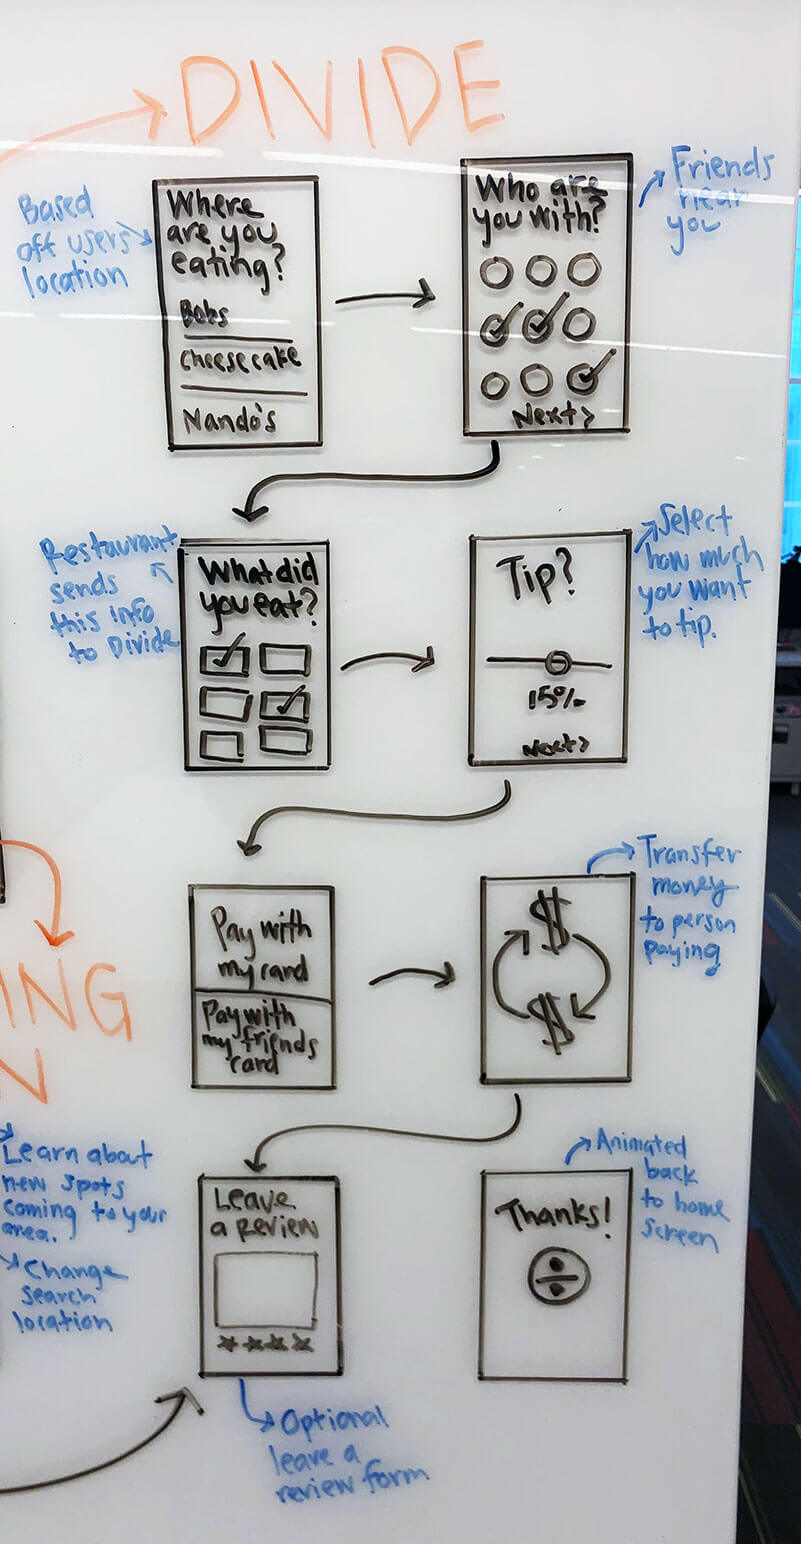 DIVIDE
Based
off users
location
Where
are you
eating?
Bobs
Cheesecake
Nando's
Who are
you with?
Next>
Friends
near
you
Restaurant
sends
this info
to Divide
What did
you eat?
Tip?
15%
Next>
Select
how much
you want
to tip.
Pay with
my card
Pay with
my friends
card
$
$
Transfer
money
to person
paying
ING
N
Learn about
new spots
coming to your
area.
Change
search
location
Leave
a Review
Optional
leave a
review form
Thanks!
Animated
back
to home
screen